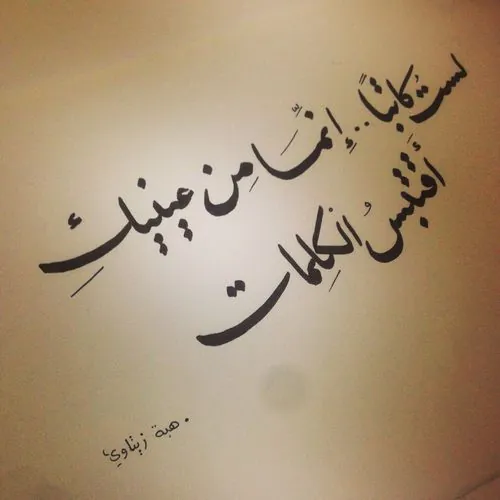 لستُ كاتباً.. إنمَّا مِن عينيكِ
أقتبسُ الكلِمات
هبة زيتاوي